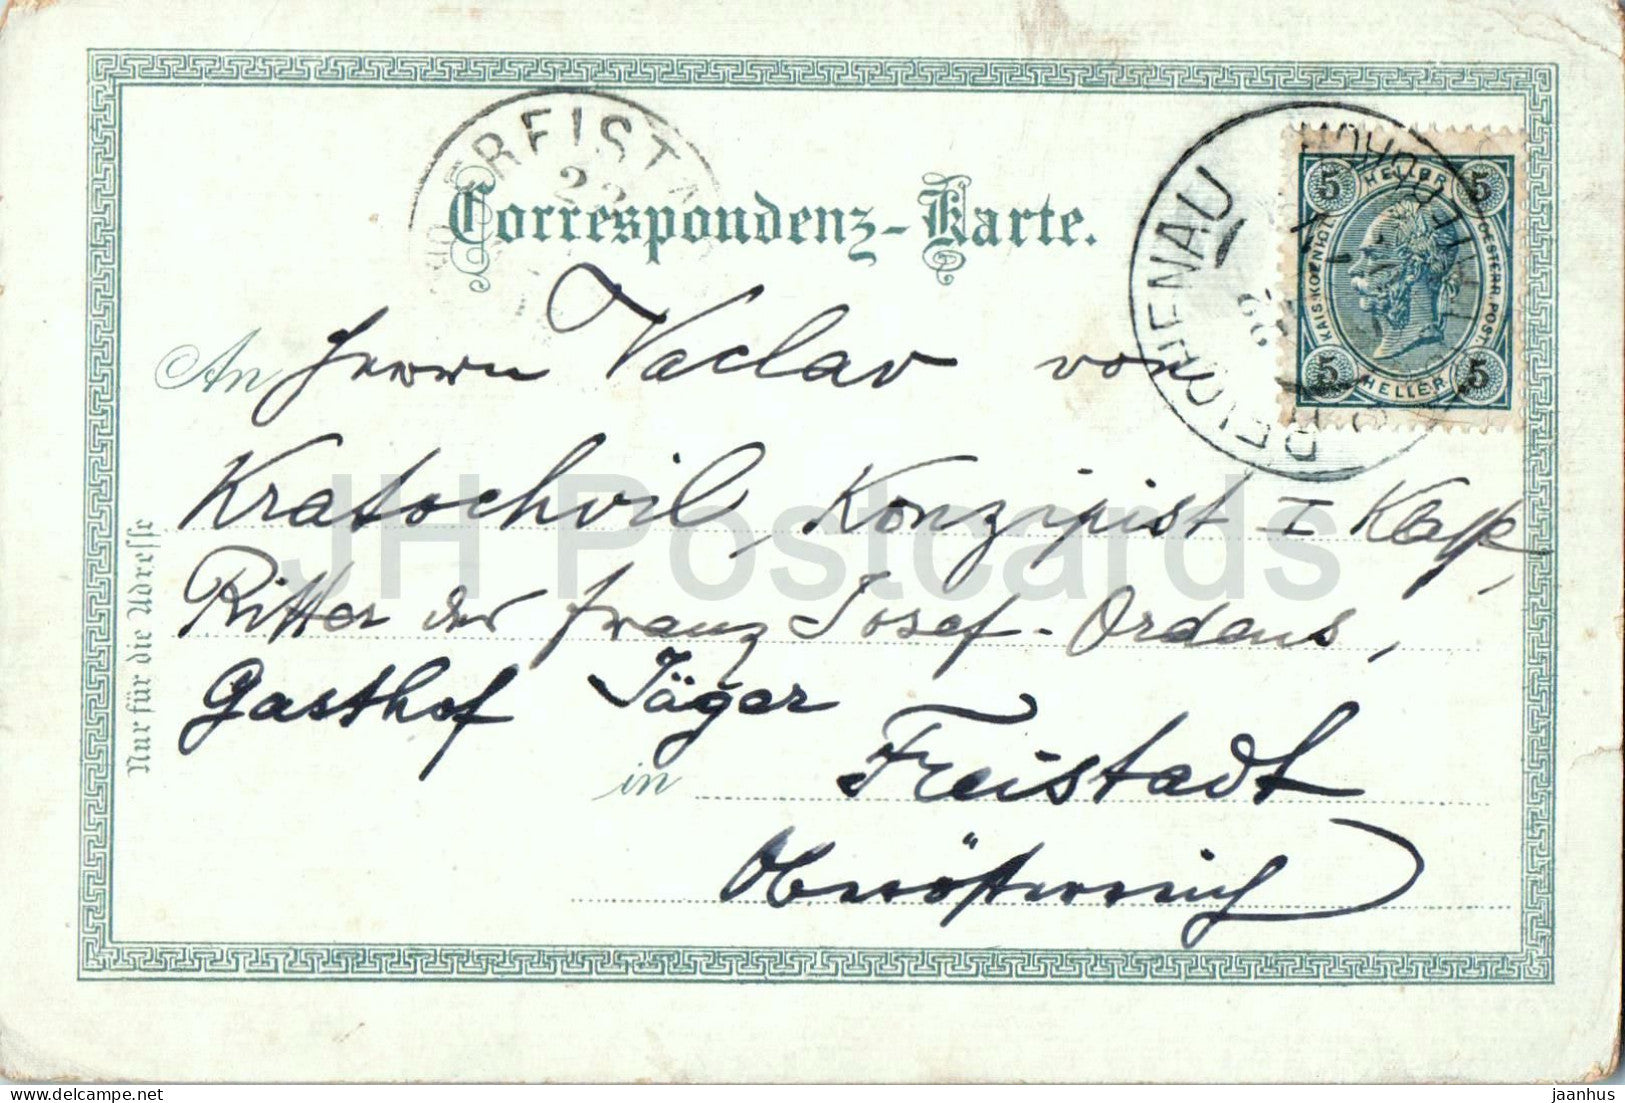 FREISTA
22
Correspondenz-Karte.
REICHENAU
22
5 HELLER 5
KAIS. KOENIGL. OESTERR. POST.
5 HELLER 5
An Herrn Vaclav von
Kratochvil, Konzipist I Klasse,
Ritter der Franz Josef-Ordens,
Gasthof Jäger
in Freistadt
Oberösterreich
Nur für die Adresse
JH Postcards
delcampe.net
jaanhus